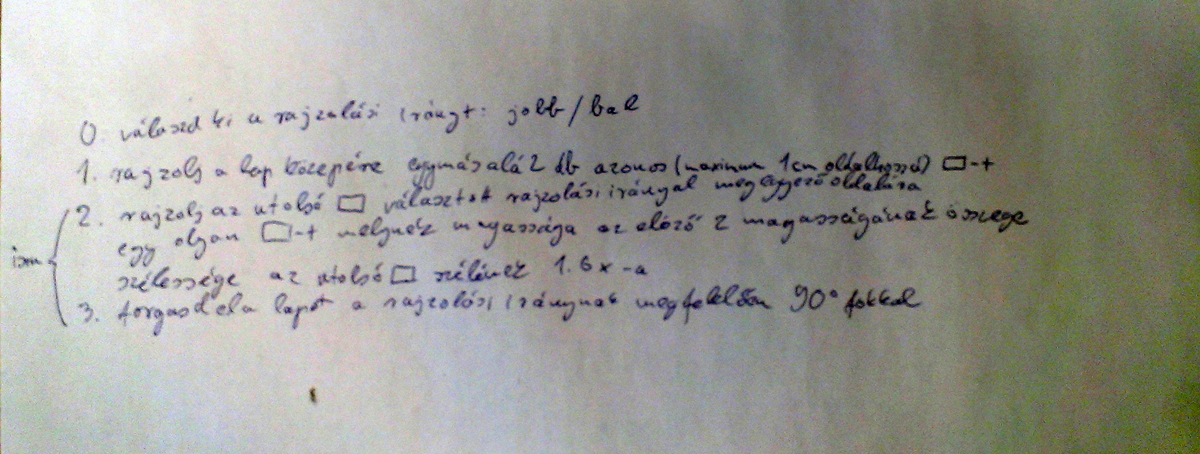 0. válaszd ki a rajzolási irányt: jobb/bal
1. rajzolj a lap közepére egymás alá 2 db azonos (maximum 1cm oldalhosszú) □-t
2. rajzolj az utolsó □ választott rajzolási iránnyal megegyező oldalára
egy olyan □-t melynek magassága az előző 2 magasságának összege
ism { szélessége az utolsó □ szélének 1.6x-a
3. forgasd el a lapot a rajzolási iránynak megfelelően 90° fokkal